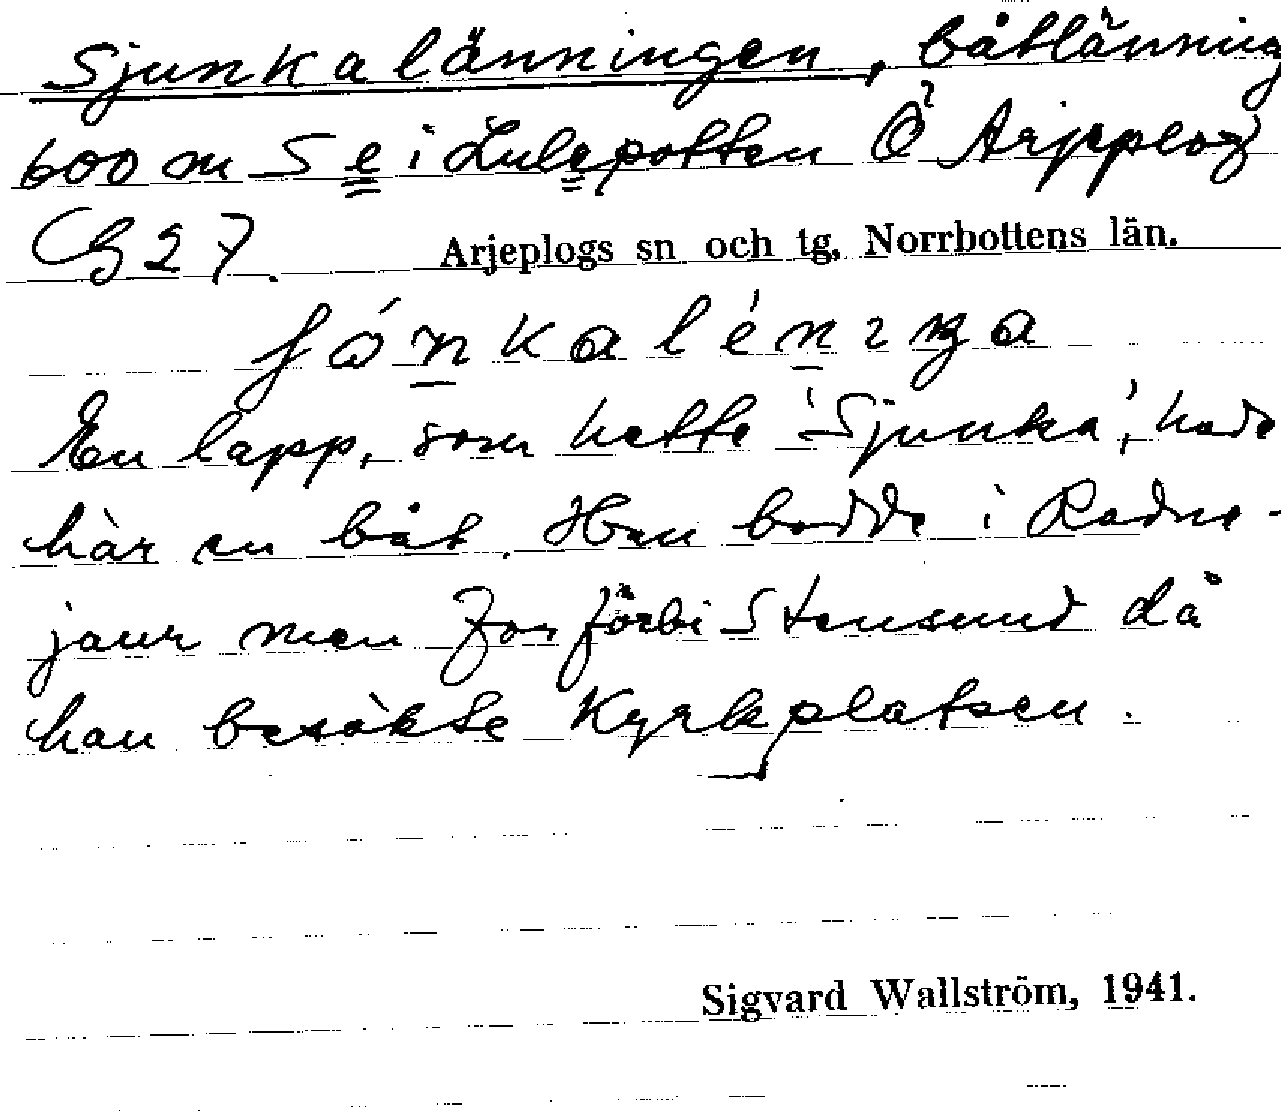 Sjunkalänningen, båtlänning
600 m S e i Lulepotten Ö Arjeplog
G 27.
Arjeplogs sn och tg, Norrbottens län.
En lapp, som hette 'Sjunka', hade
här en båt. Han bodde i Radne-
jaur men for förbi Stensund då
han besökte Kyrkplatsen.
Sigvard Wallström, 1941.